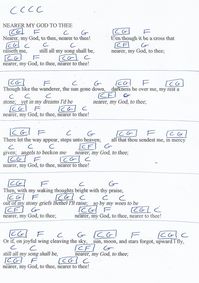 C C C C
NEARER MY GOD TO THEE
CG F C G CG F
Nearer, my God, to thee, nearer to thee! E'en though it be a cross that
CG C C C CF G
raiseth me, still all my song shall be, nearer, my God, to thee;
CG F CG C
nearer, my God, to thee, nearer to thee!
CG F C G CG F
Though like the wanderer, the sun gone down, darkness be over me, my rest a
C C C CF G
stone; yet in my dreams I'd be nearer, my God, to thee;
CG F CG C
nearer, my God, to thee, nearer to thee!
CG F C G CG F
There let the way appear, steps unto heaven; all that thou sendest me, in mercy
C C C CF G
given; angels to beckon me nearer, my God, to thee;
CG F CG C
nearer, my God, to thee, nearer to thee!
CG F C G
Then, with my waking thoughts bright with thy praise,
CG F C C C
out of my stony griefs Bethel I'll raise; so by my woes to be
CF G CG F CG C
nearer, my God, to thee; nearer, my God, to thee, nearer to thee!
CG F C G CG F C
Or if, on joyful wing cleaving the sky, sun, moon, and stars forgot, upward I fly,
C C CF G
still all my song shall be, nearer, my God, to thee;
CG F CG C
nearer, my God, to thee, nearer to thee!